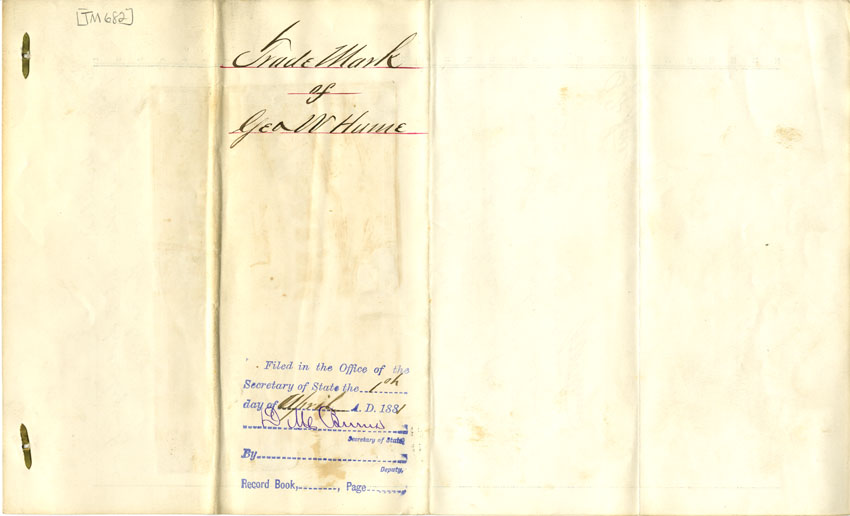 [TM 682]
Trade Mark
of
Geo W Hume
Filed in the Office of the
Secretary of State the
day of April A. D. 1881
D. M. Burns
Secretary of State
By
Deputy.
Record Book, , Page